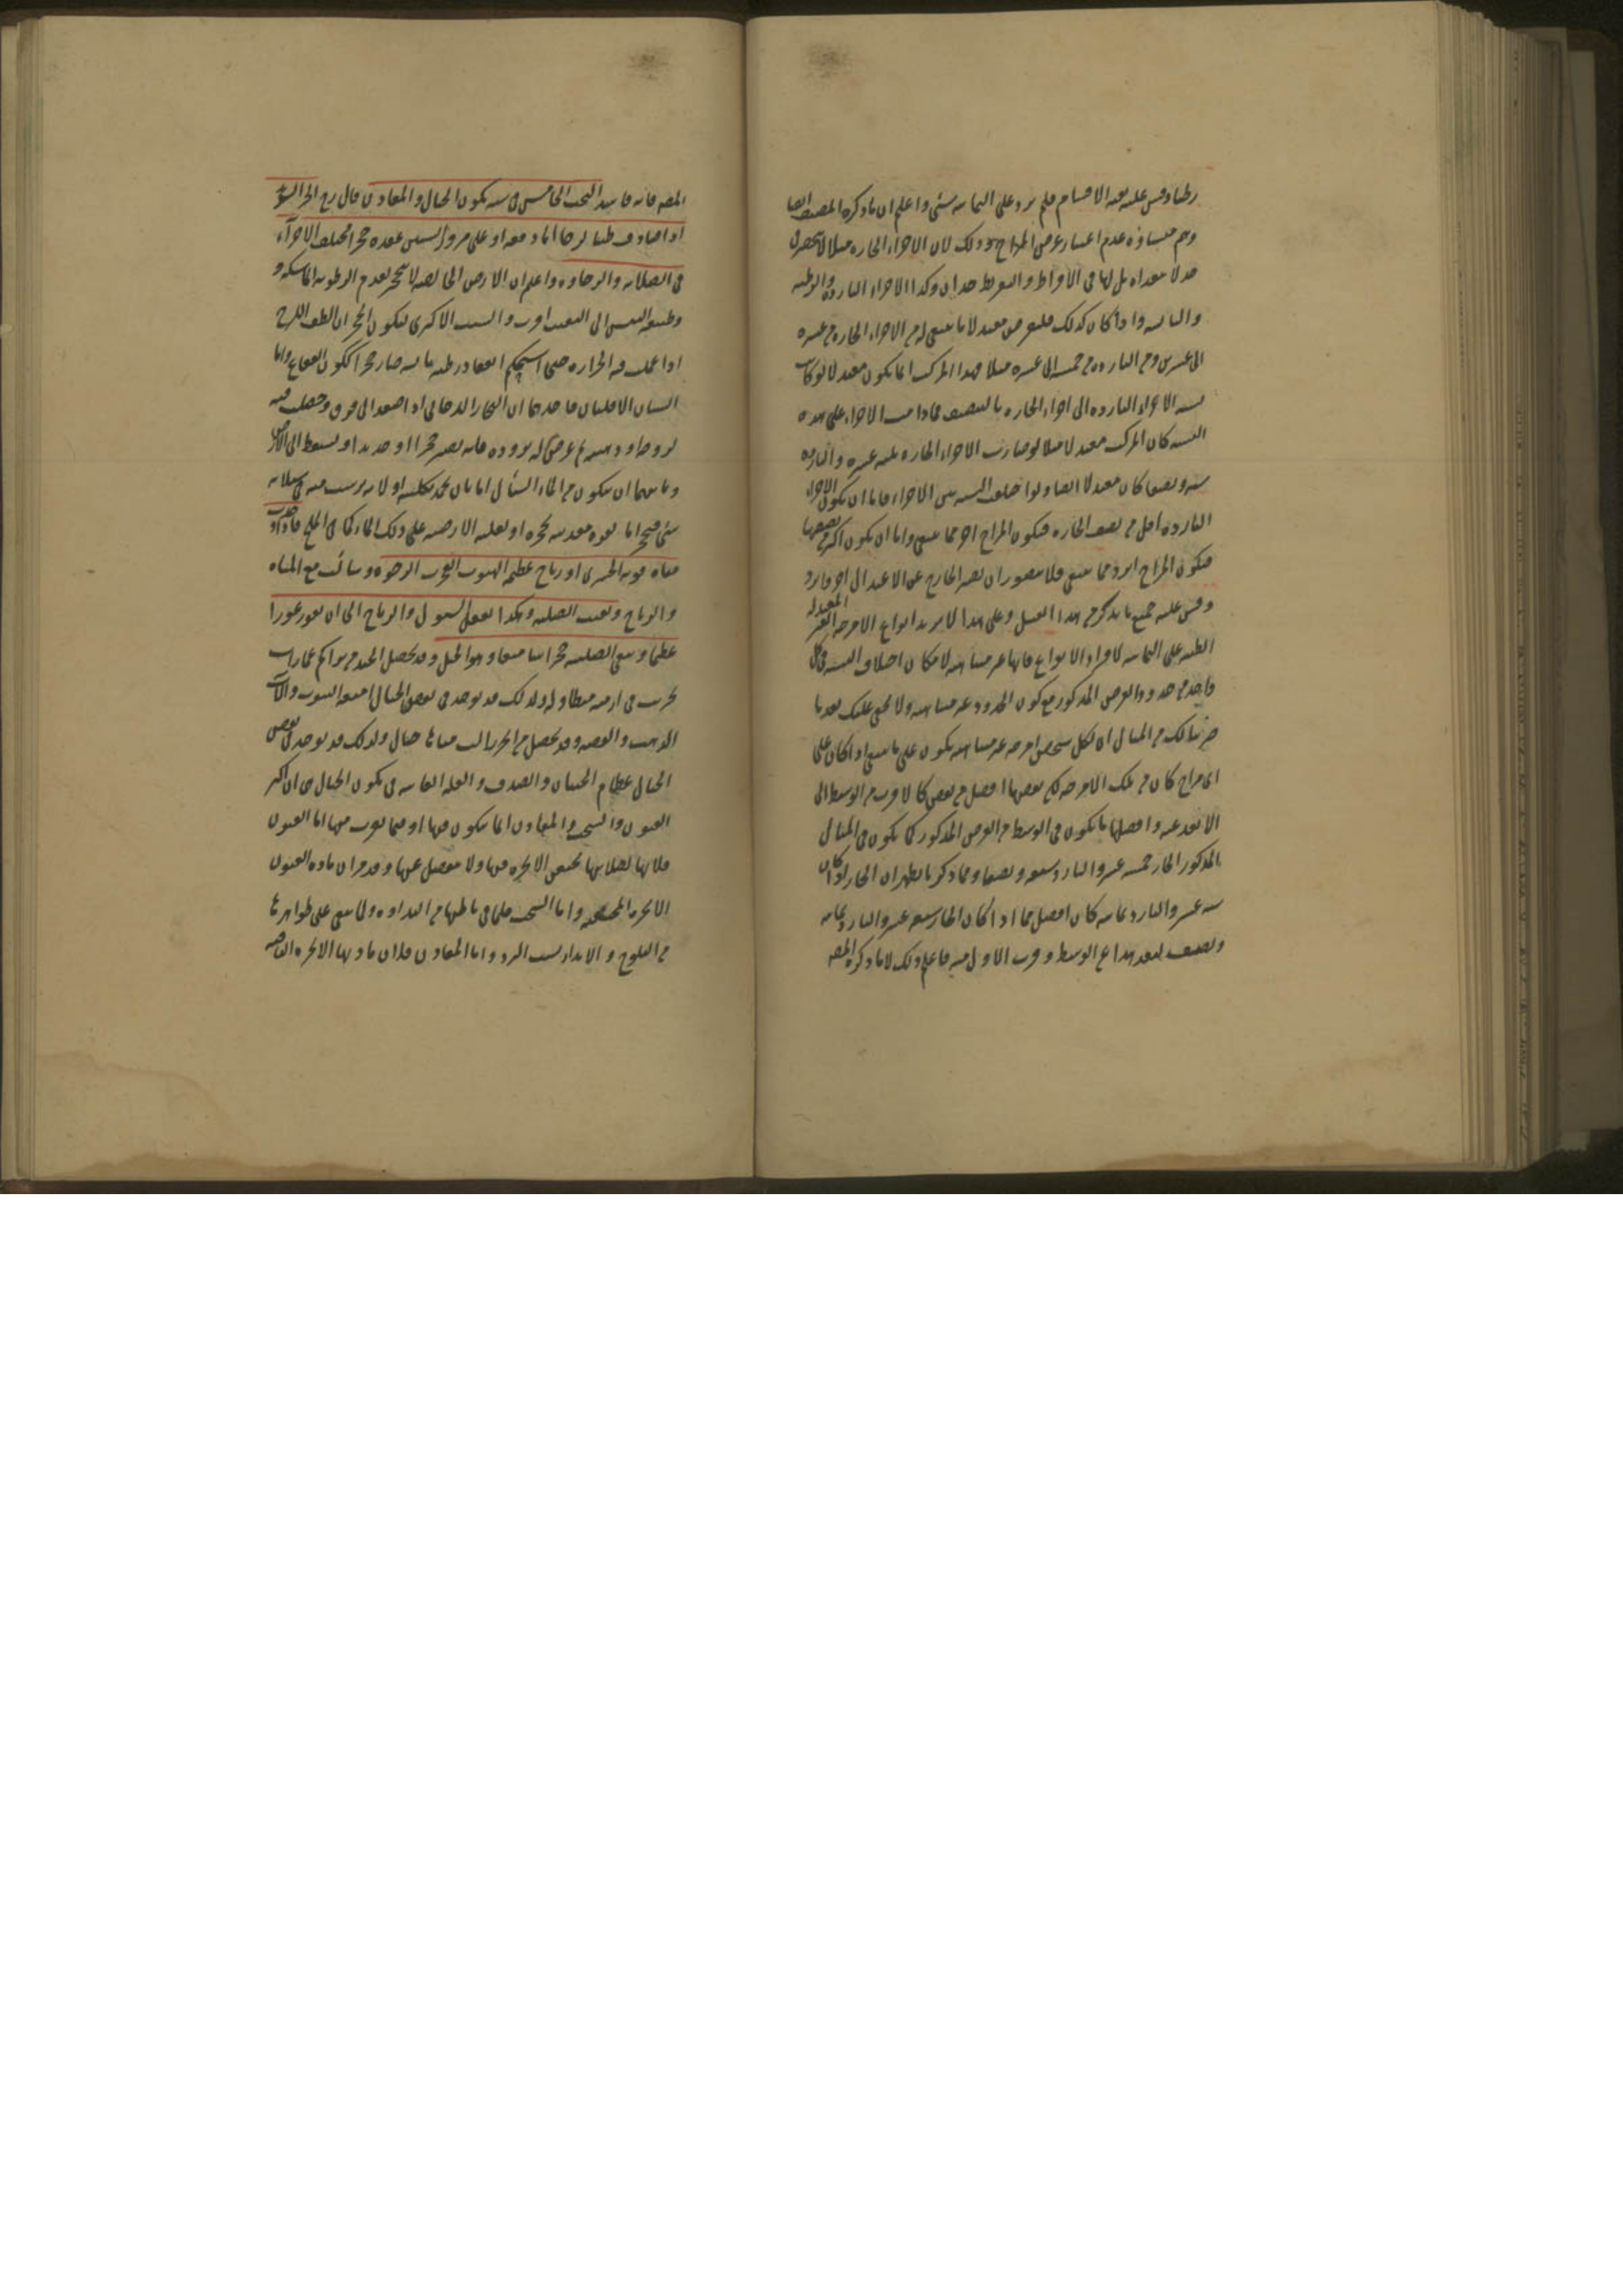 رطبا وقس عليه بقية الاقسام فلم يرد على الثمانية شئ واعلم ان ما ذكره المصنف ايضا
وهم منشاؤه عدم اعتبار عرض المزاج وذلك لان الاجزاء الحارة مثلا لا تنحصر
حد لا تتعداه بل لها فى الافراط والتفريط حدان وكذا الاجزاء الباردة والرطبة
واليابسة واذا كان كذلك فلنفرض معتدلا ما ينبغى له من الاجزاء الحارة من عشرة
الى عشرين ومن الباردة من خمسة الى عشرة مثلا فهذا المركب انما يكون معتدلا لو كانت
نسبة الاجزاء الباردة الى اجزاء الحارة بالنصف فما دامت الاجزاء على هذه
النسبة كان المركب معتدلا مثلا لو صارت الاجزاء الحارة ثلثة عشر والباردة
ستة ونصفا كان معتدلا ايضا ولو اختلفت النسبة بين الاجزاء فاما ان يكون الاجزاء
الباردة اقل من نصف الحارة فيكون المزاج احر مما ينبغى واما ان يكون اكثر من نصفها
فيكون المزاج ابرد مما ينبغى فلا يتصور ان يصير الخارج عن الاعتدال احر وابرد
وقس عليه جميع ما يذكر من هذا القبيل وعلى هذا لا يزيد انواع الامزجة الغير المعتدلة
الطبية على الثمانية لا افراد الانواع فانها غير متناهية لامكان اختلاف النسبة فى كل
واحد من حدود العرض المذكور مع كون الحدود غير متناهية ولا يخفى عليك بعد ما
ضربنا لك من المثال ان لكل شخص امزجة غير متناهية يكون على ما ينبغى اذا كان على
اى مزاج كان من تلك الامزجة لكن بعضها افضل من بعض كالاقرب من الوسط الى
الابعد عنه وافضلها ما يكون فى الوسط من العرض المذكور كما يكون فى المثال
المذكور الحار خمسة عشر والبارد سبعة ونصفا ومما ذكر يظهر ان الحار لو كان
ستة عشر والبارد ثمانية كان افضل مما اذا كان الحار سبعة عشر والبارد ثمانية
ونصف لبعد هذا عن الوسط وقرب الاول منه فاعلم ذلك لا ما ذكره المصنف
المصنف فانه فاسد البحث الخامس فى سبب تكون الجبال والمعادن قال رح الحر الشديد
اذا صادف طينا لزجا اما دفعة او على مرور السنين عقده حجرا مختلف الاجزاء
فى الصلابة والرخاوة واعلم ان الارض الخالصة لا تتحجر لعدم الرطوبة الماسكة و
وطبيعة اليبس الى التفتت اقرب والسبب الاكثرى لتكون الحجر ان الطين اللزج
اذا عملت فيه الحرارة حتى استحكم انعقاد رطبه بيابسه صار حجرا كتكون الفقاع واما
السببان الاقليان فاحدهما ان البخار الدخانى اذا صعد الى فوق وحصلت فيه
لزوجة ودهنية ثم عرض له برودة فانه يصير حجرا او حديدا ويسقط الى الارض
وثانيهما ان يتكون من الماء السائل اما بان يجمد بكليته او لانه يرسب منه فى سيلانه
شئ فيتحجر اما بقوة معدنية محجرة او لغلبة الارضية على ذلك الماء كما فى الملح فاذا وجدت
مياه قوية الجرى او رياح عظيمة الهبوب انحفرت الرخوة وسالت مع المياه
والرياح وبقيت الصلبة وهكذا تفعل السيول والرياح الى ان تغور غورا
عظيما ويبقى الصلبة حجرا شامخا وهو الجبل وقد يحصل الجبل من تراكم عمارات
خربت فى ازمنة متطاولة ولذلك قد يوجد فى بعض الجبال امتعة البيوت والات
الذهب والفضة وقد يحصل من احجار البحر ولذلك قد يوجد فى بعض
الجبال عظام الحيتان والصدف والعلة الغائية فى تكون الجبال هى ان اكثر
العيون والسحب والمعادن انما يتكون فيها او فيما يقرب منها اما العيون
فلانها لصلابتها تحتقن الابخرة فيها ولا تنفصل عنها وقد مر ان مادة العيون
الابخرة المحتقنة واما السحب فلما فى باطنها من النداوة ولما يبقى على ظواهرها
من الثلوج والانداء بسبب البرد واما المعادن فلان مادتها الابخرة الباقية